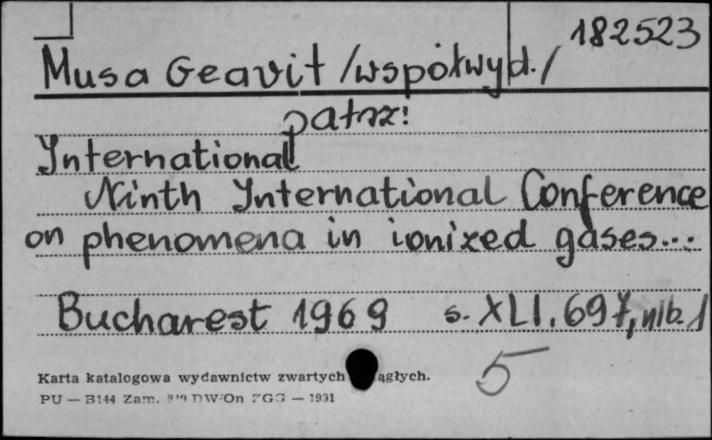 182523
Musa Geavit /współwyd./
patrz:
International
Ninth International Conference
on phenomena in ionized gases...
Bucharest 1969 s. XLI, 697, nlb. 1
5
Karta katalogowa wydawnictw zwartych ągłych.
PU — B144 Zam. DW/On ZGG — 1991